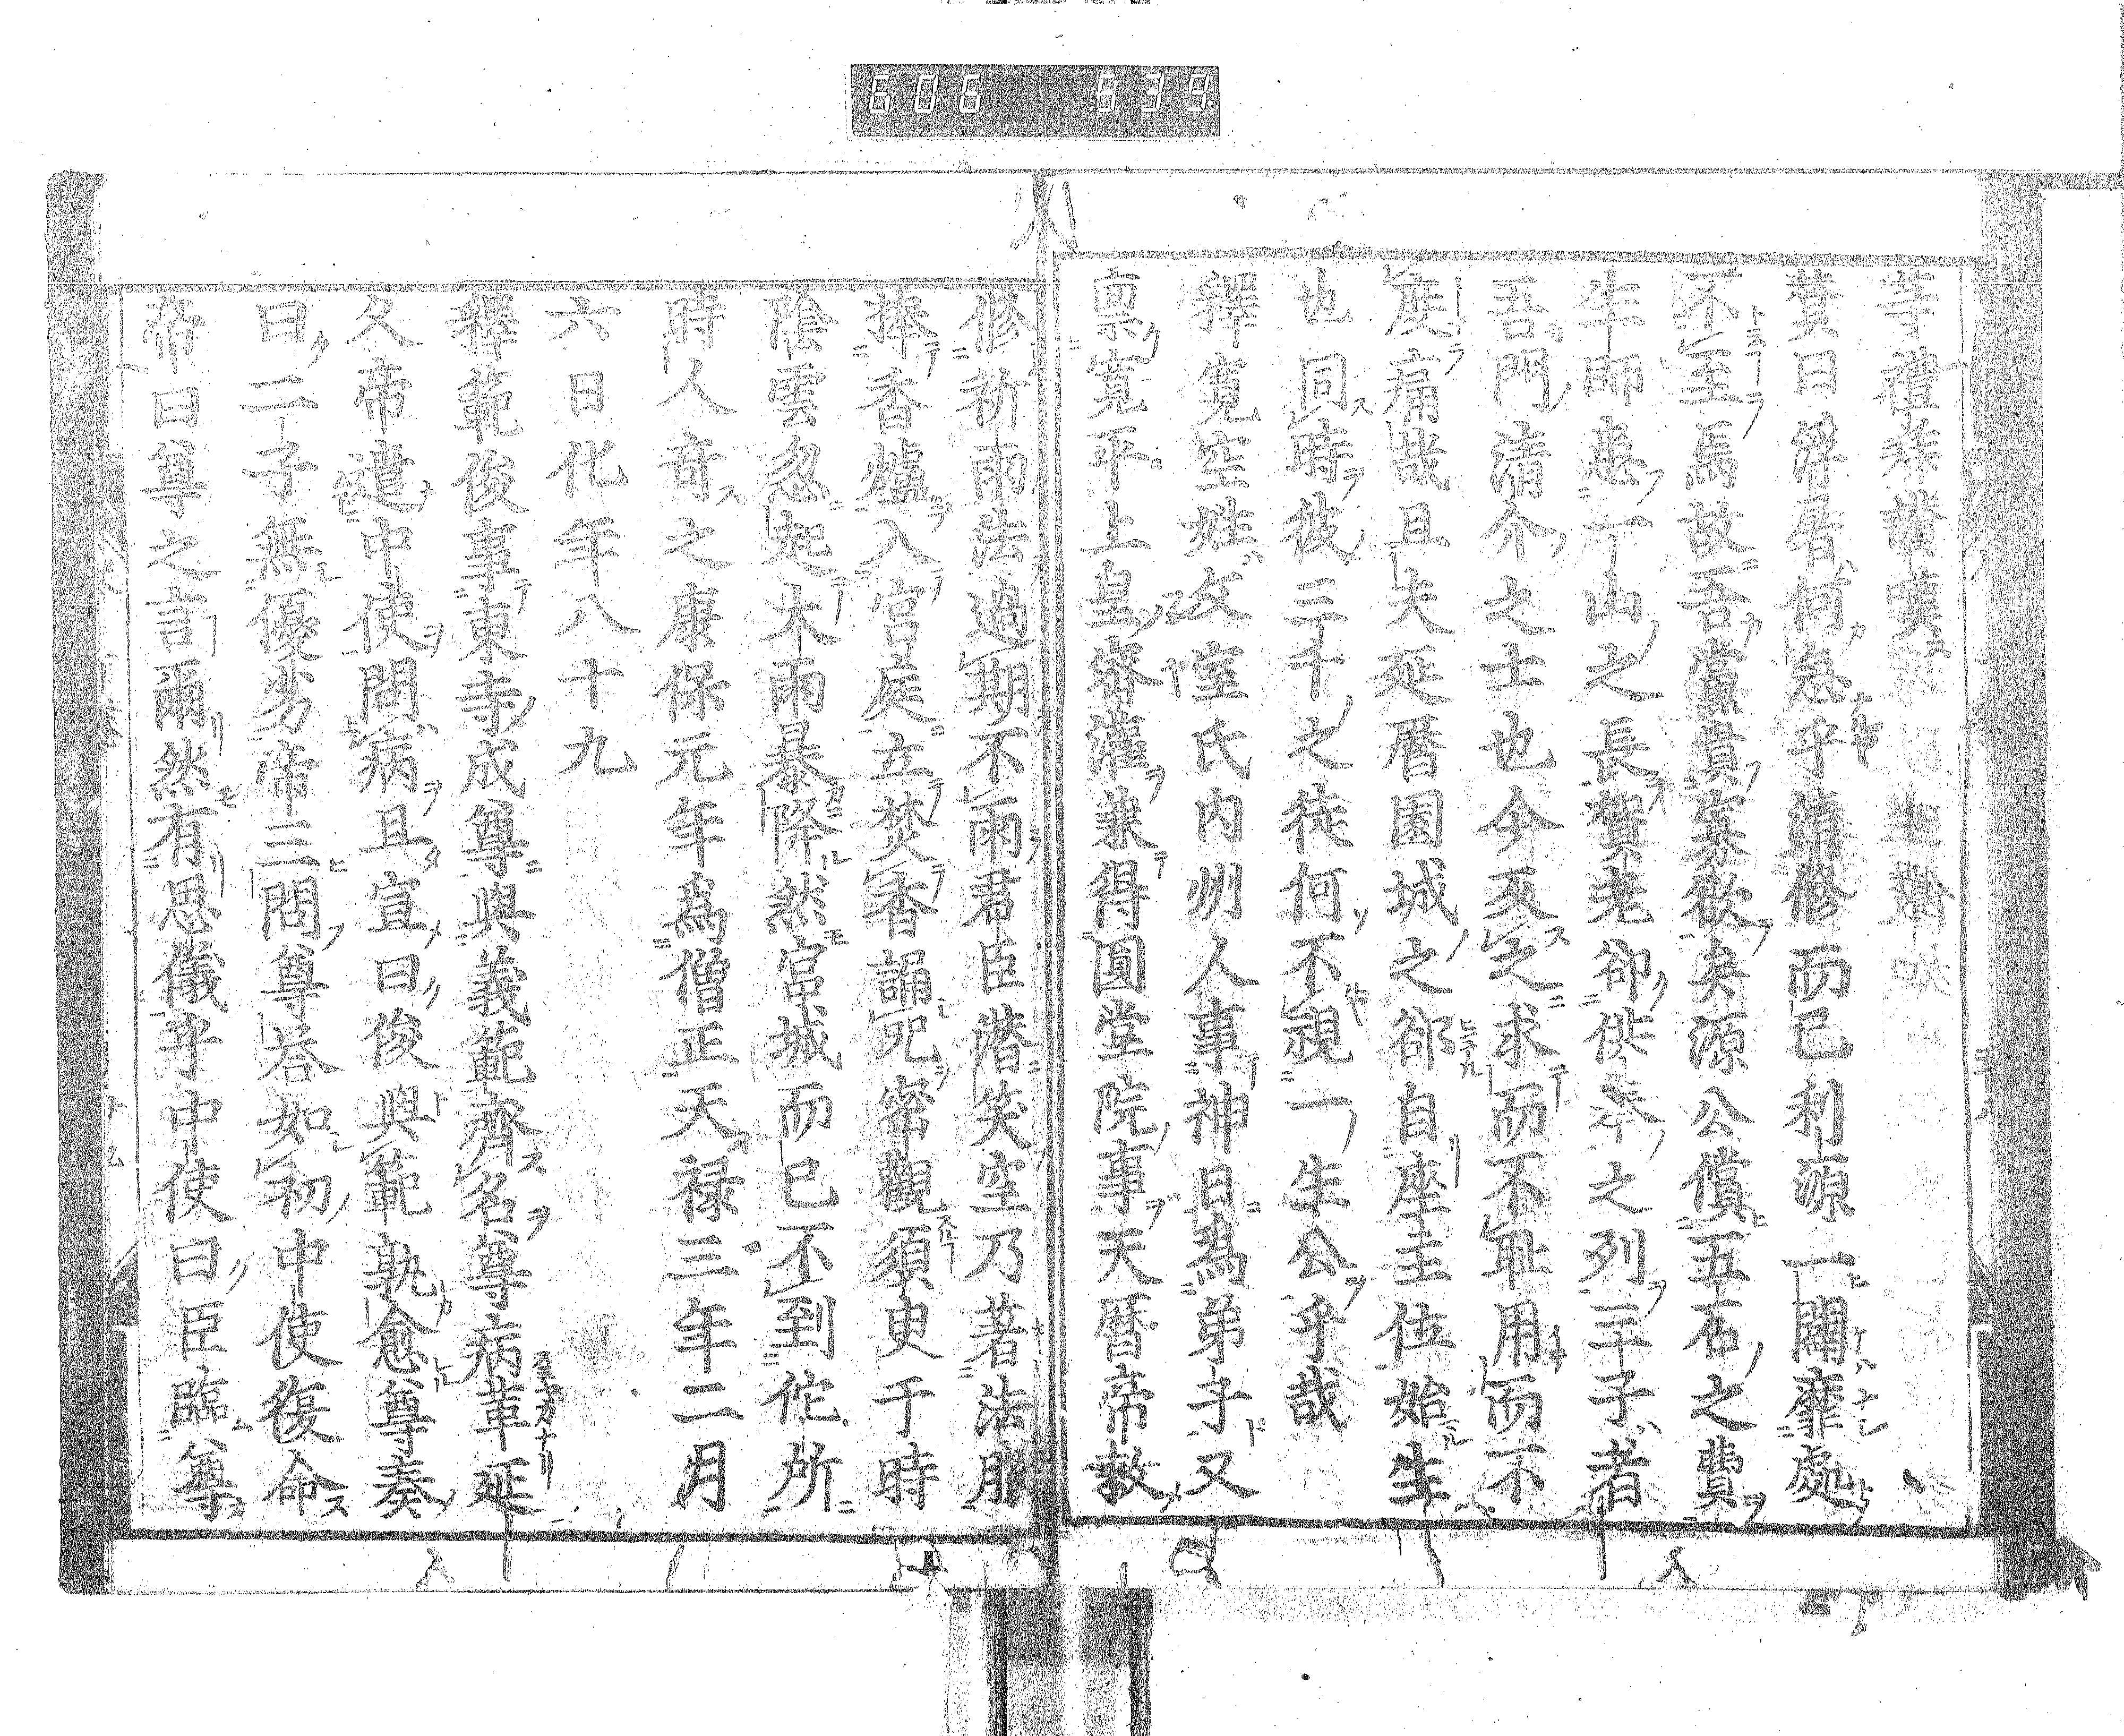 606 639
等禮恭讃嘆
賛曰浮屠何急乎清修而已利源一闢靡處
不至焉故吾黨貴寡欲矣源公償五石之費
生師恚一山之長賀老卻供奉之列三子者
吾門清介之士也今反之求而不耻用而不
度痛哉且夫延曆園城之郤自座主位始生
也同時彼三千之徒何不視一生公乎哉
釋寛空姓文室氏内州人事神日爲弟子又
禀寛平上皇密灌兼得圓堂院事天曆帝敕
修祈雨法過期不雨君臣潜笑空乃著法服
捧香爐入宮庭立焚香誦咒密觀須臾于時
陰雲忽起大雨暴降然宮城而已不到佗所
時人奇之康保元年爲僧正天禄三年二月
六日化年八十九
釋範俊事東寺成尊與義範齊名尊病革延
久帝遣中使問病且宣曰俊與範孰愈尊奏
曰二子無優劣帝三問尊荅如初中使復命
帝曰尊之言爾然有思儀乎中使曰臣臨尊